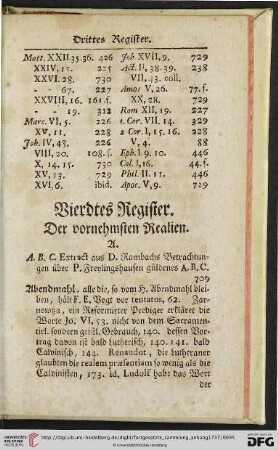 Drittes Register.
Matt. XXII. 35. 36. 426
XXIV, 15. 225
XXVI. 28. 730
- - 67. 227
XXVIII, 16. 161. f.
- - 19. 312
Marc. VI, 5. 226
XV, 11. 228
Joh. IV, 48. 226
VIII, 20. 108. f.
X, 14. 15. 730
XV. 13. 729
XVI, 6. ibid.
Joh. XVII, 9. 729
Act. II, 38. 39. 238
VII. 43. coll.
Amos V, 26. 77. f.
XX, 28. 729
Rom XII, 19. 227
1. Cor. VII. 14. 329
2 Cor. I, 15. 16. 228
V, 4. 88
Eph. I. 9. 10. 446
Col. I, 16. 44. f.
Phil. II. 11. 446
Apoc. V, 9. 729
Vierdtes Register.
Der vornehmsten Realien.
A.
A. B. C. Extract aus D. Rambachs Betrachtun-
gen über P. Freylingshausen güldenes A. B. C.
709
Abendmahl, alle die, so vom H. Abendmahl blei-
ben, hält F. E. Vogt vor tentatos, 62. Zar-
nowitza, ein Reformirter Prediger erkläret die
Worte Jo. VI, 53. nicht von dem Sacramen-
tirl. sondern geistl. Gebrauch, 140. dessen Vor-
trag davon ist bald lutherisch, 140. 141. bald
Calvinisch, 144. Renaudot, die Lutheraner
glaubten die realem præsentiam so wenig als die
Calvinisten, 173. id. Ludolf habe das Wort
der